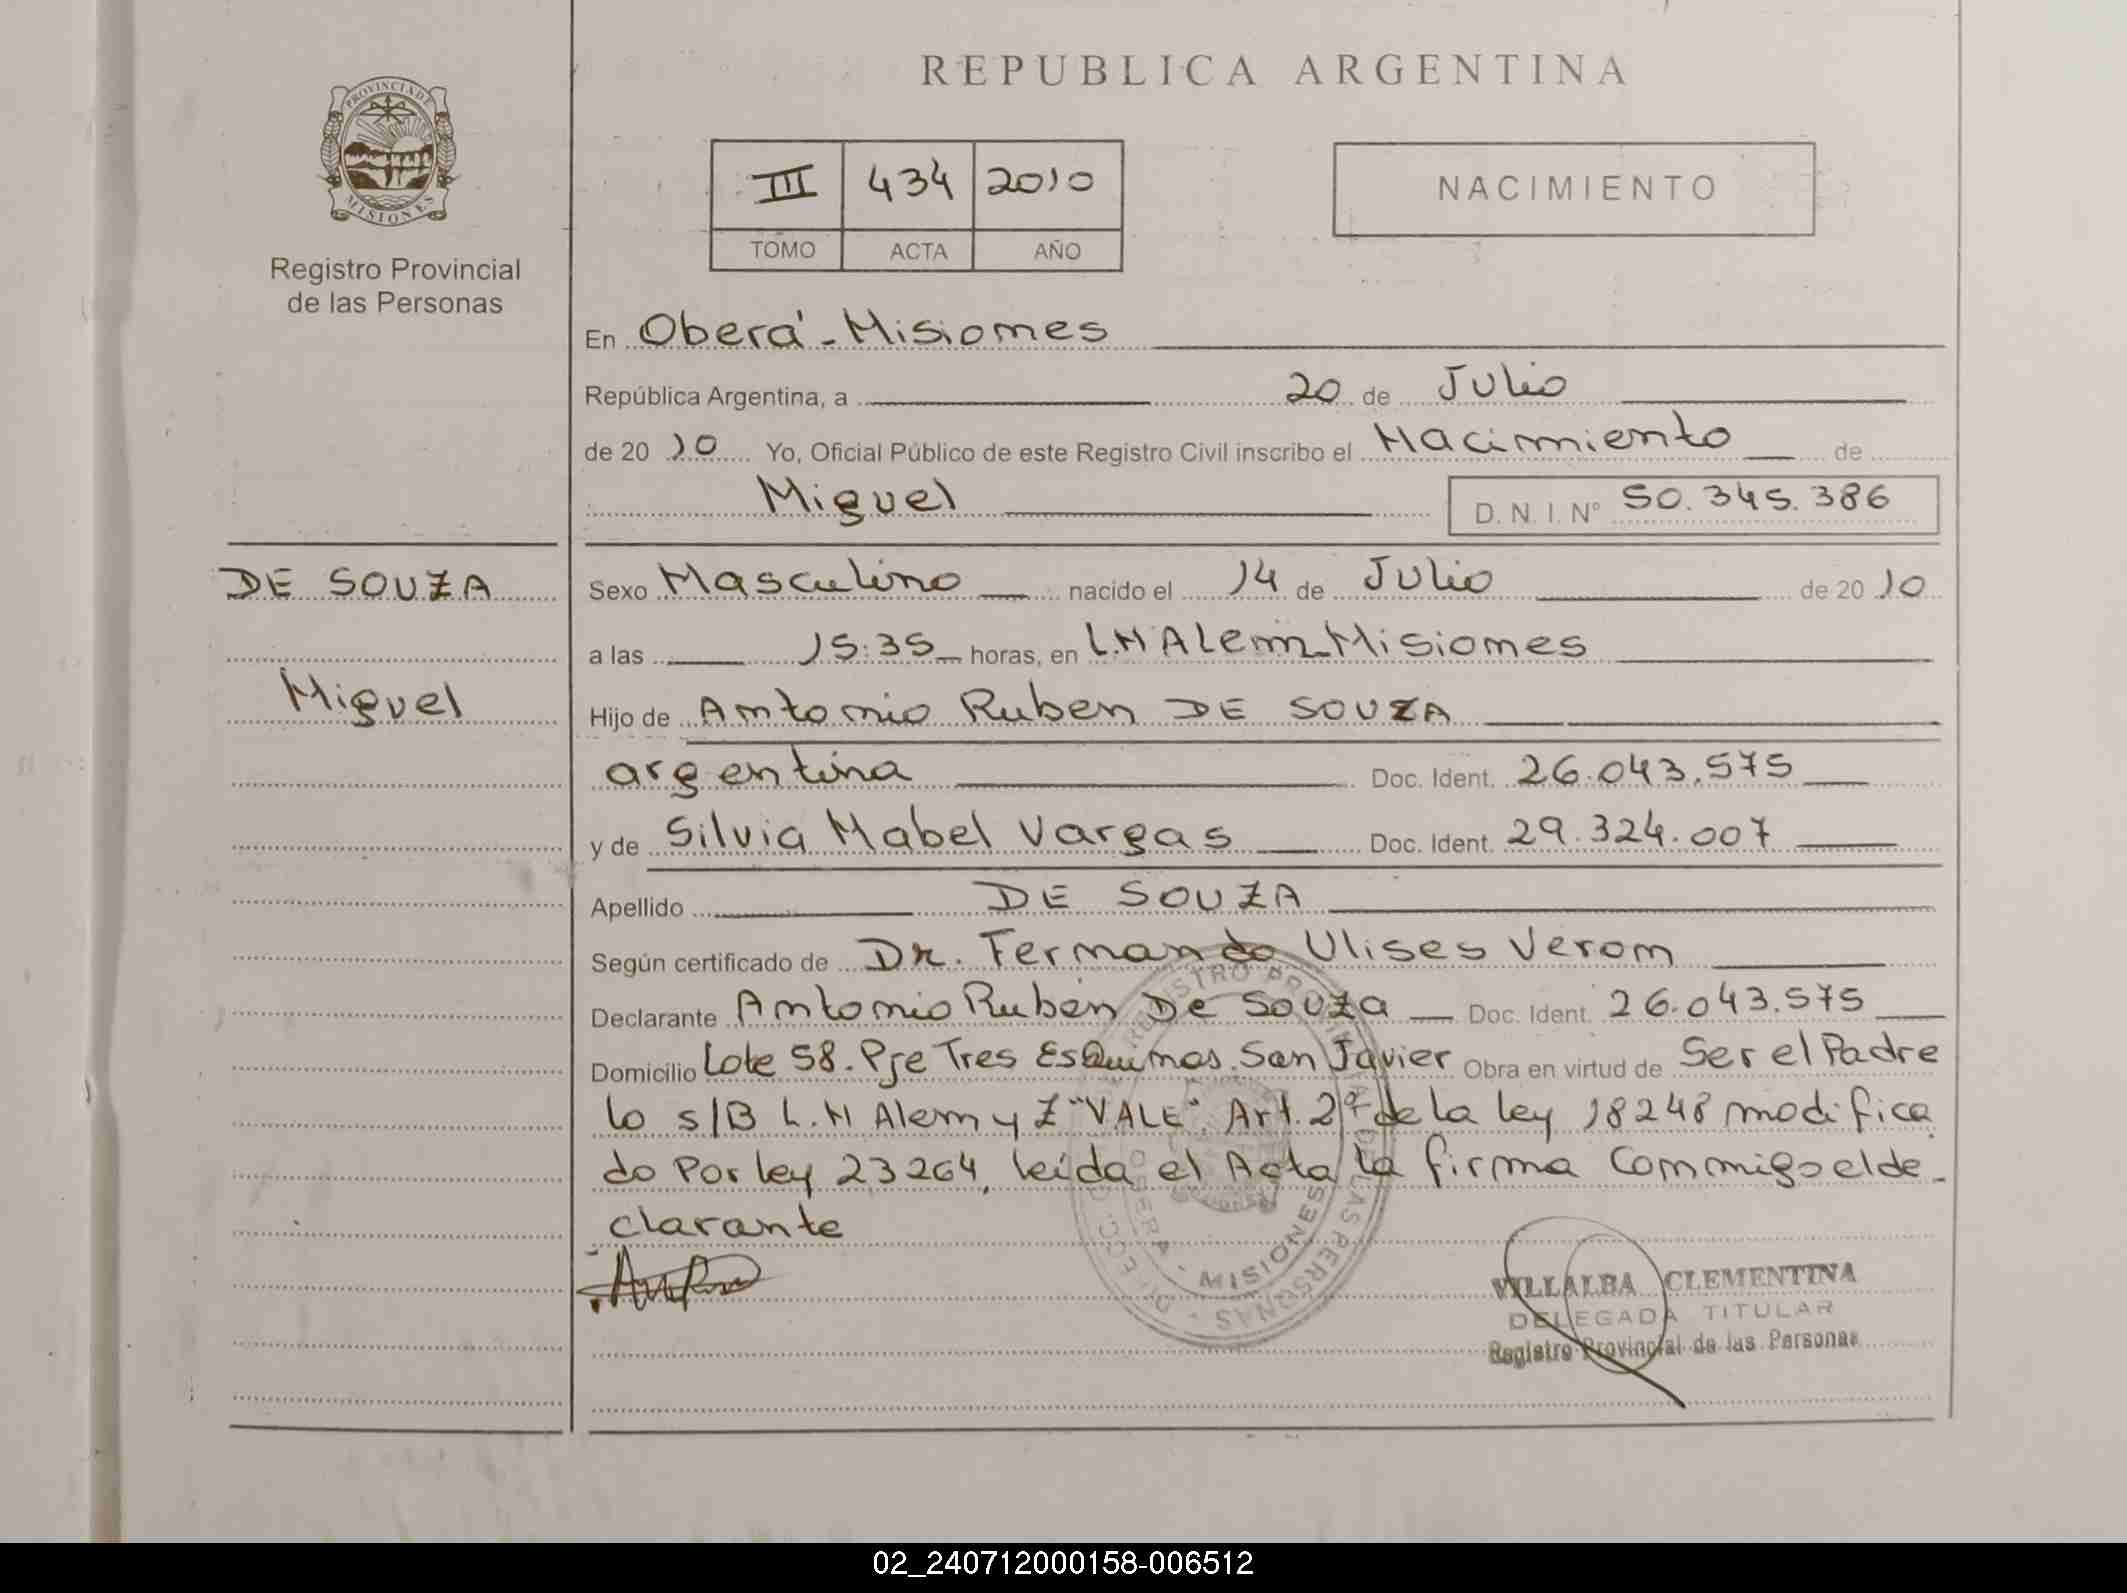 REPUBLICA ARGENTINA
PROVINCIA DE
MISIONES
Registro Provincial
de las Personas
III 434 2010
TOMO ACTA AÑO
NACIMIENTO
En Oberá - Misiones
República Argentina, a 20 de Julio
de 2010 Yo, Oficial Público de este Registro Civil inscribo el Nacimiento de
Miguel D. N. I. N° 50.345.386
DE SOUZA
Miguel
Sexo Masculino nacido el 14 de Julio de 2010
a las 15:35 horas, en L.N Alem - Misiones
Hijo de Antonio Ruben DE SOUZA
argentina Doc. Ident. 26.043.575
y de Silvia Mabel Vargas Doc. Ident. 29.324.007
Apellido DE SOUZA
Según certificado de Dr. Fernando Ulises Veron
Declarante Antonio Rubén De Souza Doc. Ident. 26.043.575
Domicilio Lote 58. Pje Tres Esquinas. San Javier Obra en virtud de Ser el Padre
lo s/B L.N Alem y Z "VALE". Art. 2° de la ley 18248 modifica
do Por ley 23264, leída el Acta la firma Conmigo el de-
clarante
REGISTRO PROVINCIAL DE LAS PERSONAS
OBERA - MISIONES
VILLALBA CLEMENTINA
DELEGADA TITULAR
Registro Provincial de las Personas
02_240712000158-006512